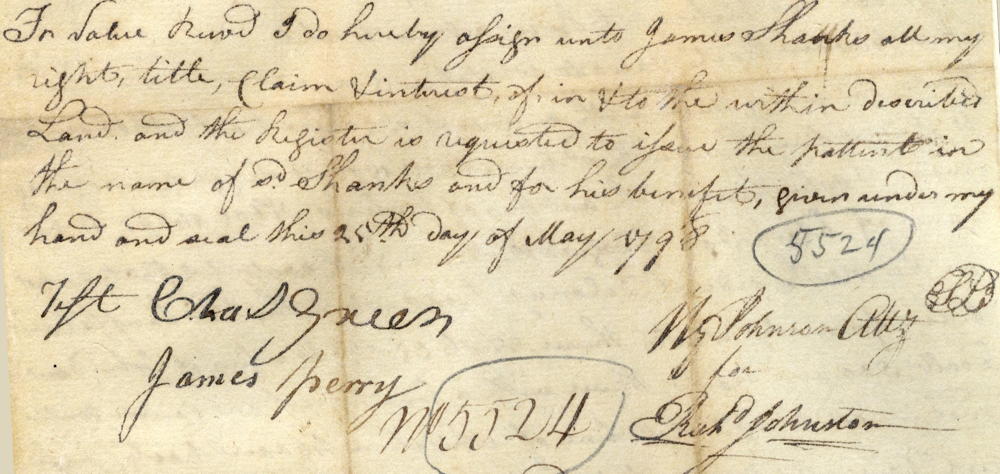 For Value Recvd I do hereby assign unto James Shanks all my
right, title, Claim & interest, of, in & to the within described
Land. and the Register is requested to issue the pattent in
the name of sd. Shanks and for his benifit, given under my
hand and seal this 25th day of May 1798
5524
Test Chas Green
Johnson Atty
for
James Perry
No 5524
Richd Johnston